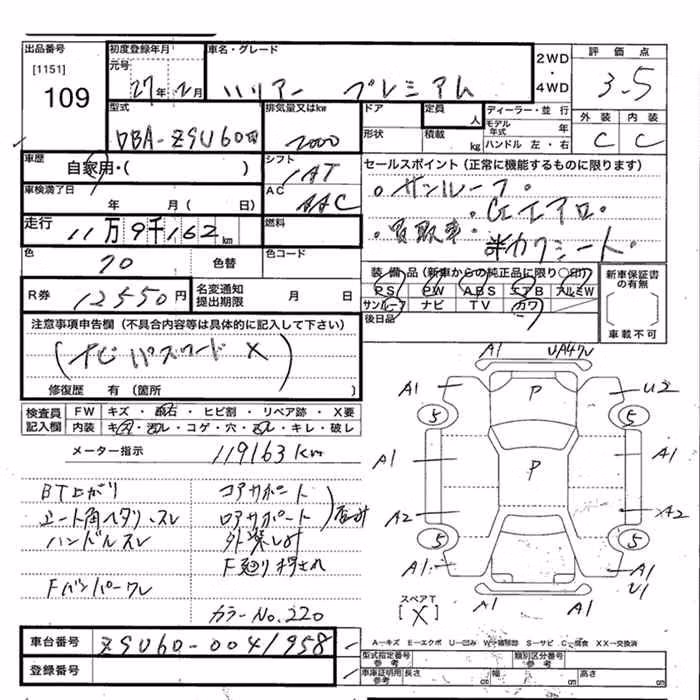 出品番号 初度登録年月 車名・グレード 2WD ・ 4WD 評価点
[1151] 元号
109 27年 2月 ハリアー プレミアム 3.5
型式 排気量又はkw ドア 定員 人 ディーラー・並行 外装 内装
DBA-ZSU60W 2000 形状 積載 kg モデル年式 年 C C
ハンドル 左・右
車歴 シフト セールスポイント(正常に機能するものに限ります)
自家用・( ) AT ・サンルーフ・
車検満了日 AC
年 月( 日) AAC ・買取車・
走行 燃料 半カワシート・
11万9千162km
色 色替 色コード 装備品(新車からの純正品に限り○印) 新車保証書の有無
70 PS PW ABS エアB アルミW
R券 12550円 名変通知 提出期限 月 日 サンルーフ ナビ TV カワ
後日品 車載不可
注意事項申告欄(不具合内容等は具体的に記入して下さい)
(ナビパスワード X)
修復歴 有(箇所 )
検査員記入欄 FW キズ・飛石・ヒビ割・リペア跡・X要
内装 キズ・汚レ・コゲ・穴・スレ・キレ・破レ
メーター指示 119163km
BT上がり コアサポート
シート角ヘタリ、スレ ロアサポート
ハンドルスレ
Fバンパーワレ
カラーNo.220
A1 UA4ワレ
A1 P U2
5 5
A1 P A1
A2 XA2
5 5
A1 A1
U1 A1
スペアT
[X]
車台番号 ZSU60-0041958
登録番号
A-キズ E-エクボ U-凹み W-補修跡 S-サビ C-腐食 XX-交換済
型式指定番号 参考 類別区分番号 参考
車庫証明用 参考 長さ 幅 高さ